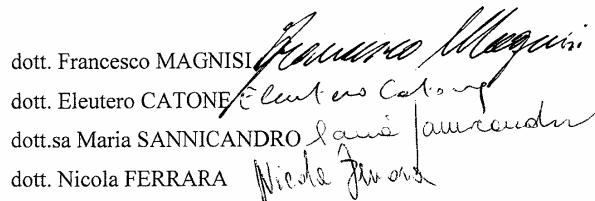 dott. Francesco MAGNISI Francesco Magnisi
dott. Eleutero CATONE Eleutero Catone
dott.sa Maria SANNICANDRO Maria Sannicandro
dott. Nicola FERRARA Nicola Ferrara